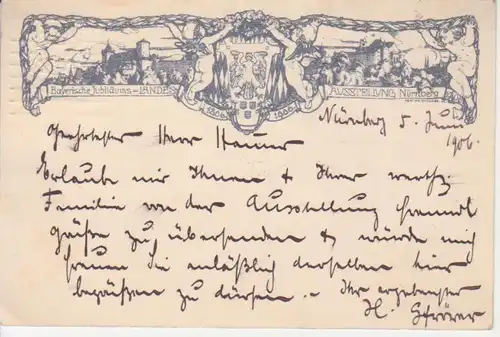 Bayerische Jubiläums-LANDES-
AUSSTELLUNG Nürnberg
1806 1906
Nürnberg 5. Juni
1906.
Geehrtester Herr
Erlaube mir Ihnen & Ihrer werthg.
Familie von der Ausstellung freundl
Grüße zu übersenden & würde mich
freuen Sie anläßlich derselben hier
begrüßen zu dürfen. – Ihr ergebenster
H. Gfrörer